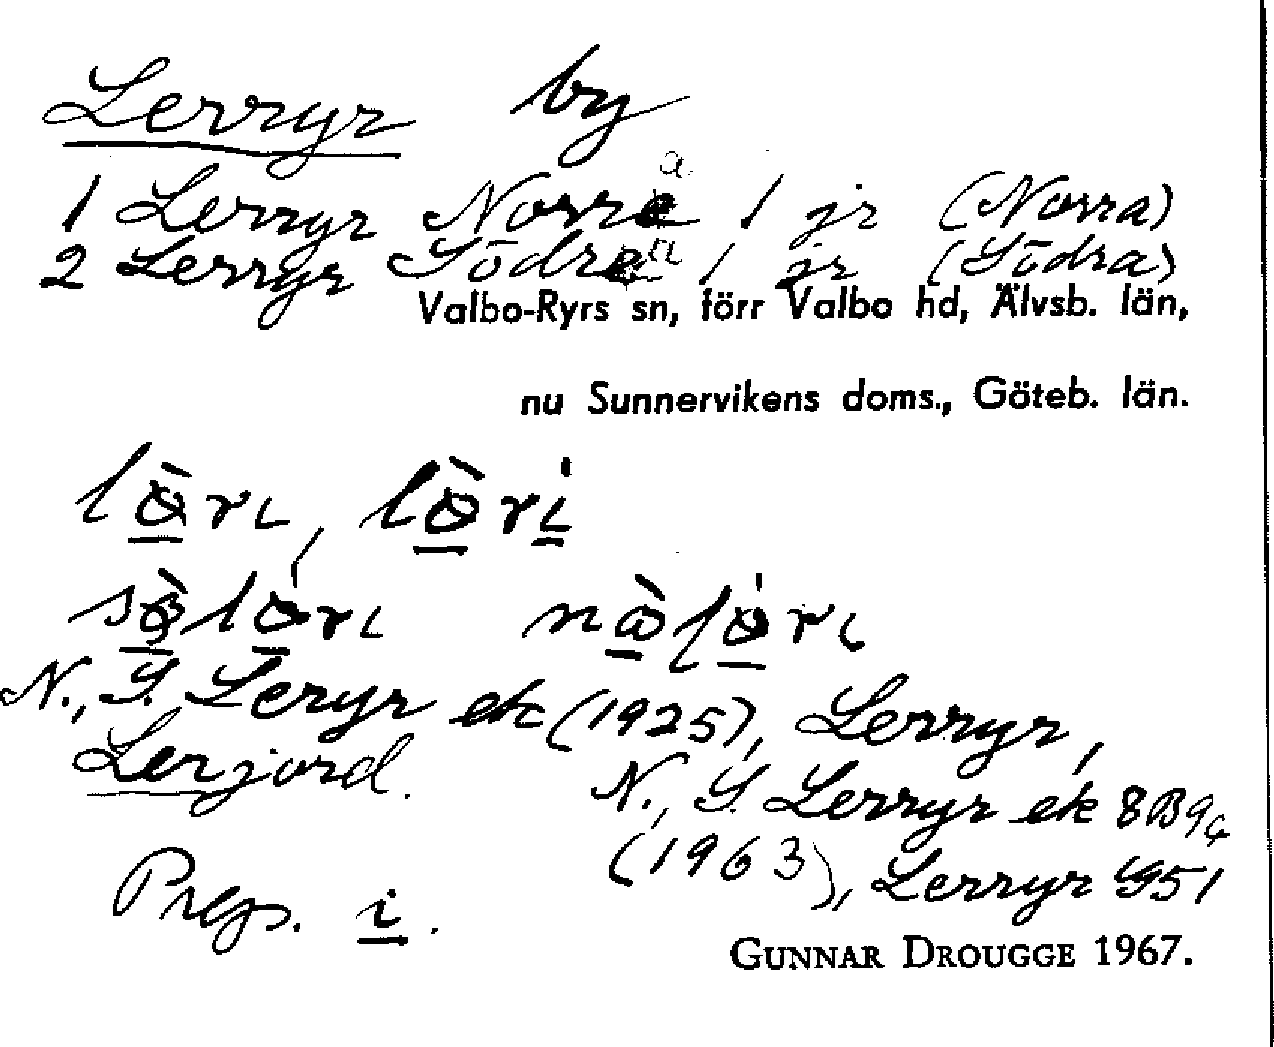 Lerryr by
1 Lerryr Norra 1 jr (Norra)
2 Lerryr Södra 1 jr (Södra)
Valbo-Ryrs sn, förr Valbo hd, Älvsb. län,
nu Sunnervikens doms., Göteb. län.
N., S. Leryr ek (1925), Lerryr,
Lerjord.
N., S. Lerryr ek 8B9c
(1963), Lerryr G51
Prep. i.
GUNNAR DROUGGE 1967.